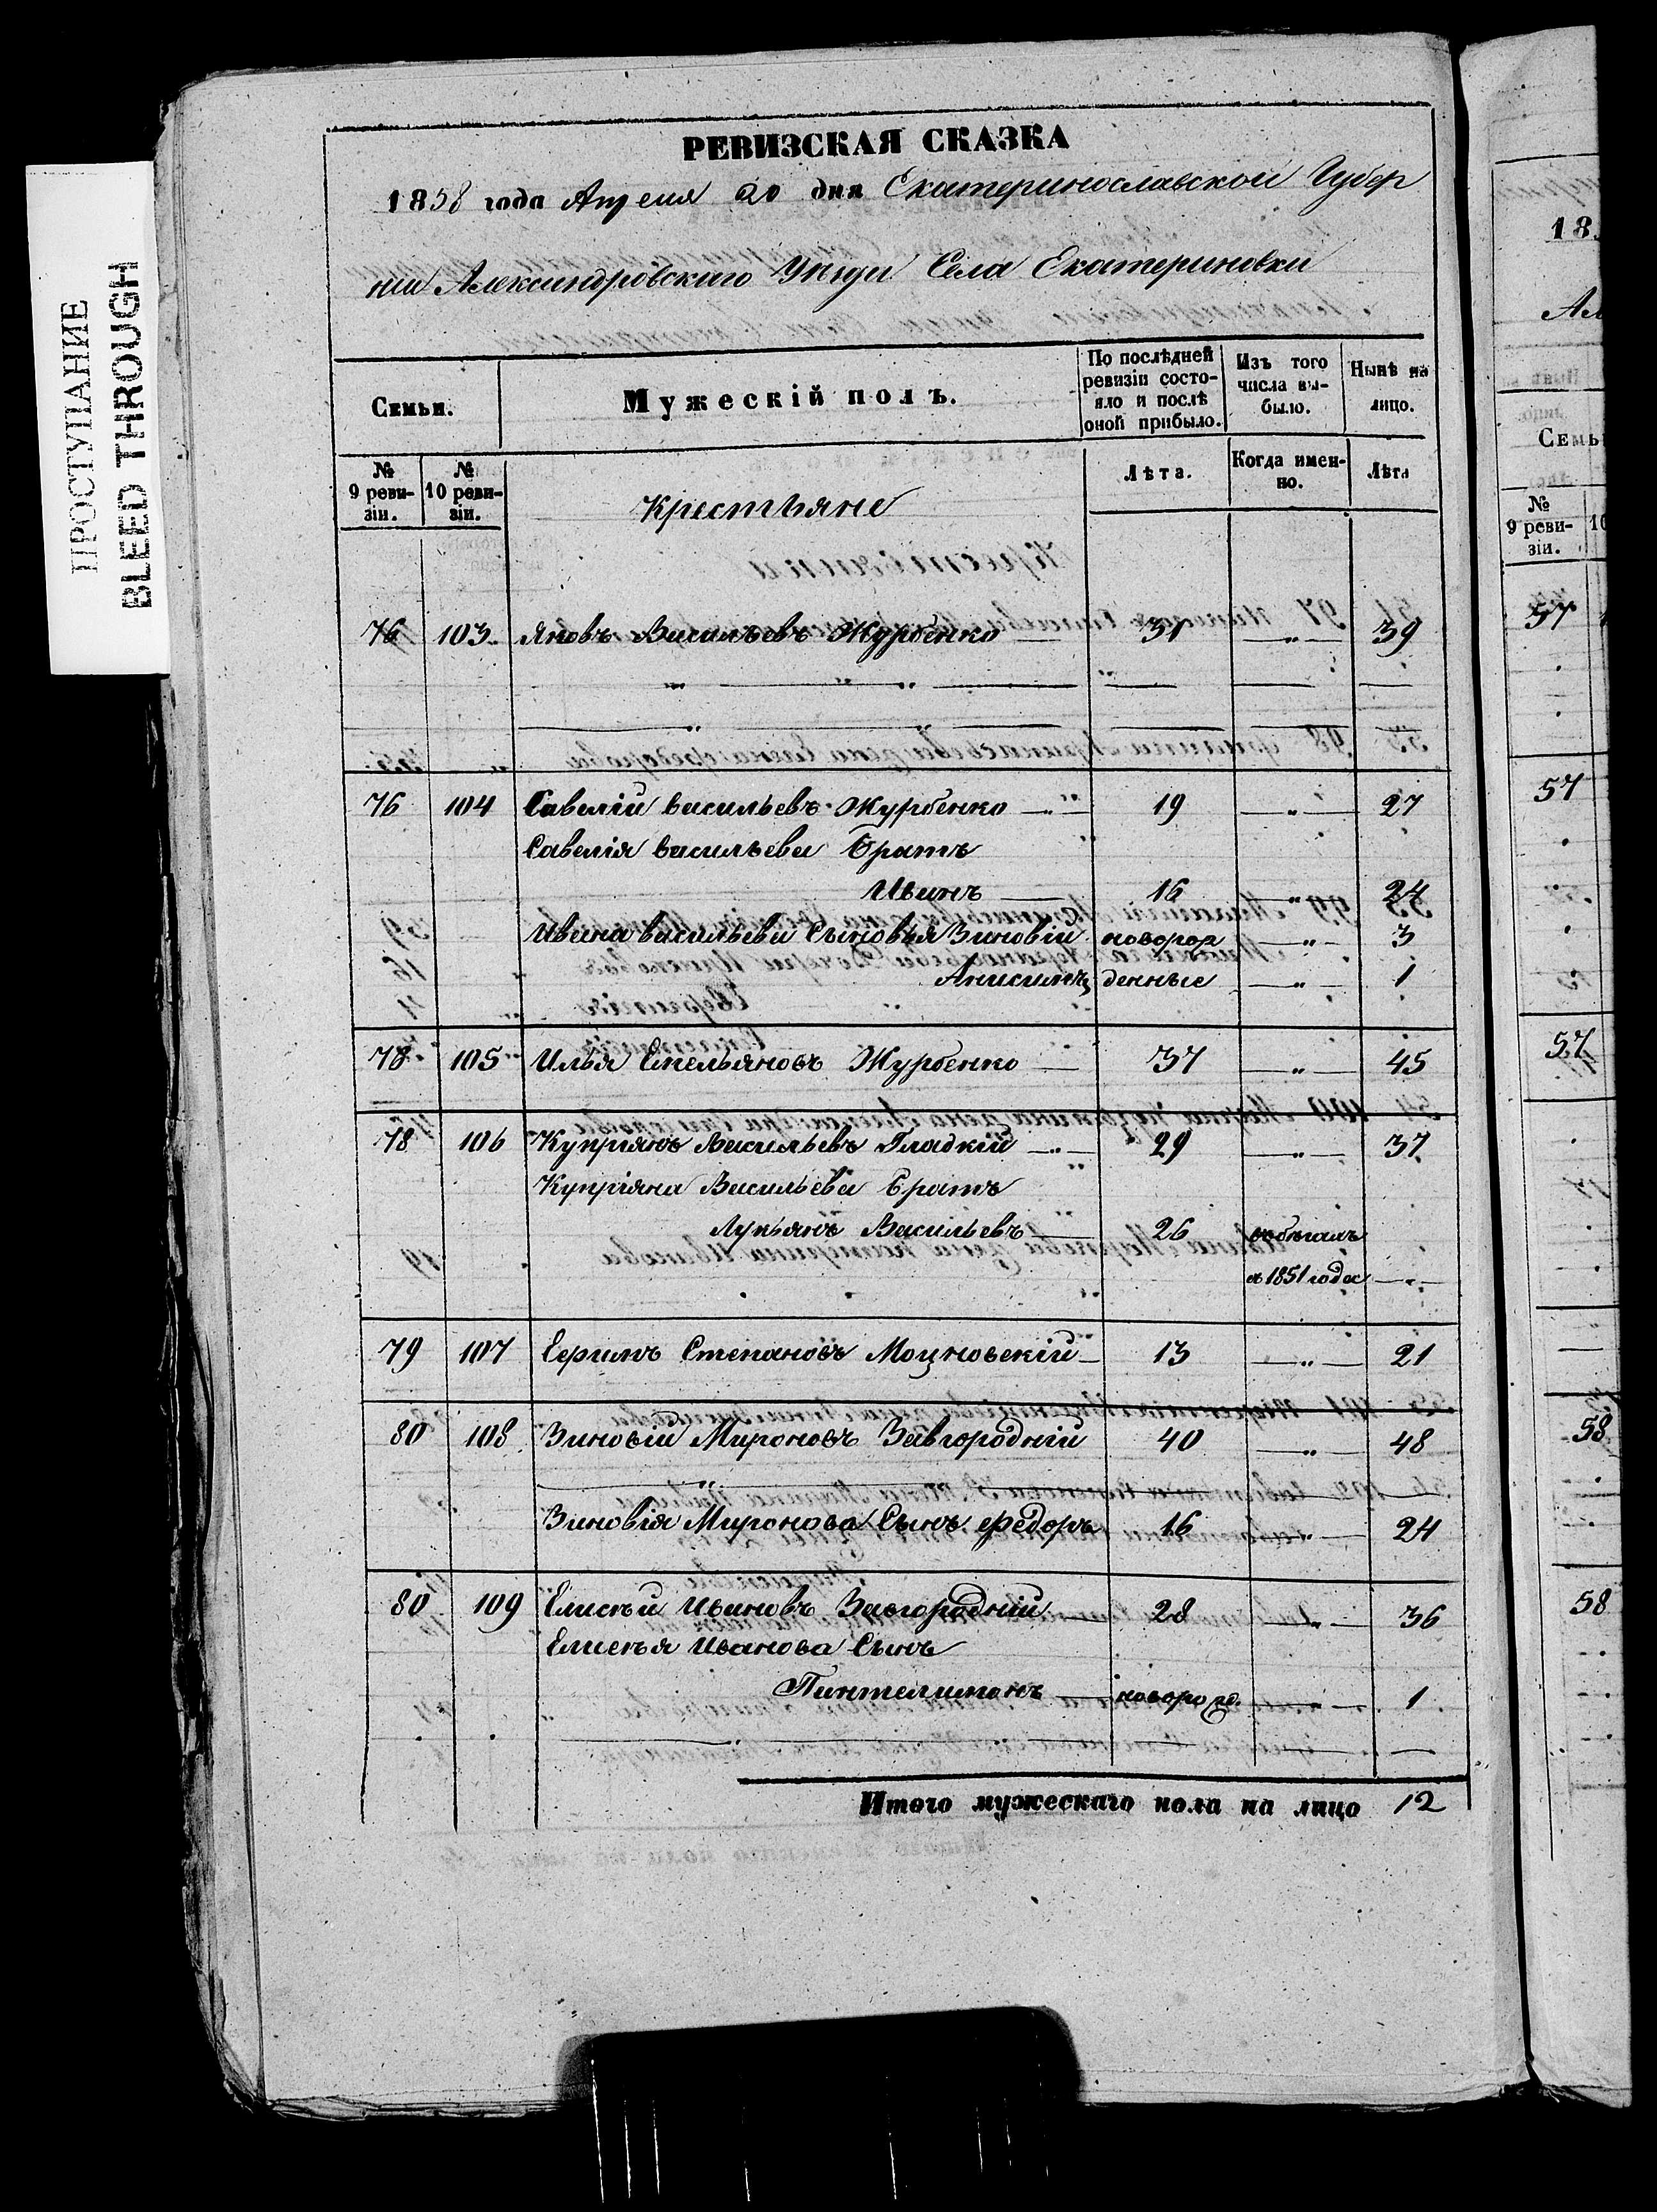 ПРОСТУПАНИЕ
BLEED THROUGH
РЕВИЗСКАЯ СКАЗКА
1858 года Апреля 20 дня Екатеринославской Губер
ніи Александровскаго Уѣзда Села Екатериновки
Семьи. Мужескій полъ. По послѣдней ревизіи состояло и послѣ оной прибыло. Изъ того числа выбыло. Нынѣ на лицо.
№ 9 ревизіи. № 10 ревизіи. Крестьяне Лѣта. Когда именно. Лѣта
76 103 Яковъ Васильевъ Журбенко 31 „ 39
76 104 Савелій Васильевъ Журбенко 19 „ 27
Савелія Васильева Братъ
Иванъ 16 „ 24
Ивана Васильева Сыновья Зиновій новорож „ 3
Анисимъ денные „ 1
78 105 Илья Емельяновъ Журбенко 37 „ 45
78 106 Купріянъ Васильевъ Гладкій 29 „ 37
Купріяна Васильева Братъ
Лукьянъ Васильевъ 26
в 1851 года „
79 107 Степановъ 13 „ 21
80 108 Зиновій Мироновъ Завгородній 40 „ 48
Зиновія Миронова Сынъ Федоръ 16 „ 24
80 109 Елисѣй Ивановъ Завгородній 28 „ 36
Елисѣя Иванова Сынъ
Пантелимонъ новорожд. „ 1
Итого мужескаго пола на лицо 12
18
Ал
Семь
№ 9 ревизіи. 10
57
57
57
58
58